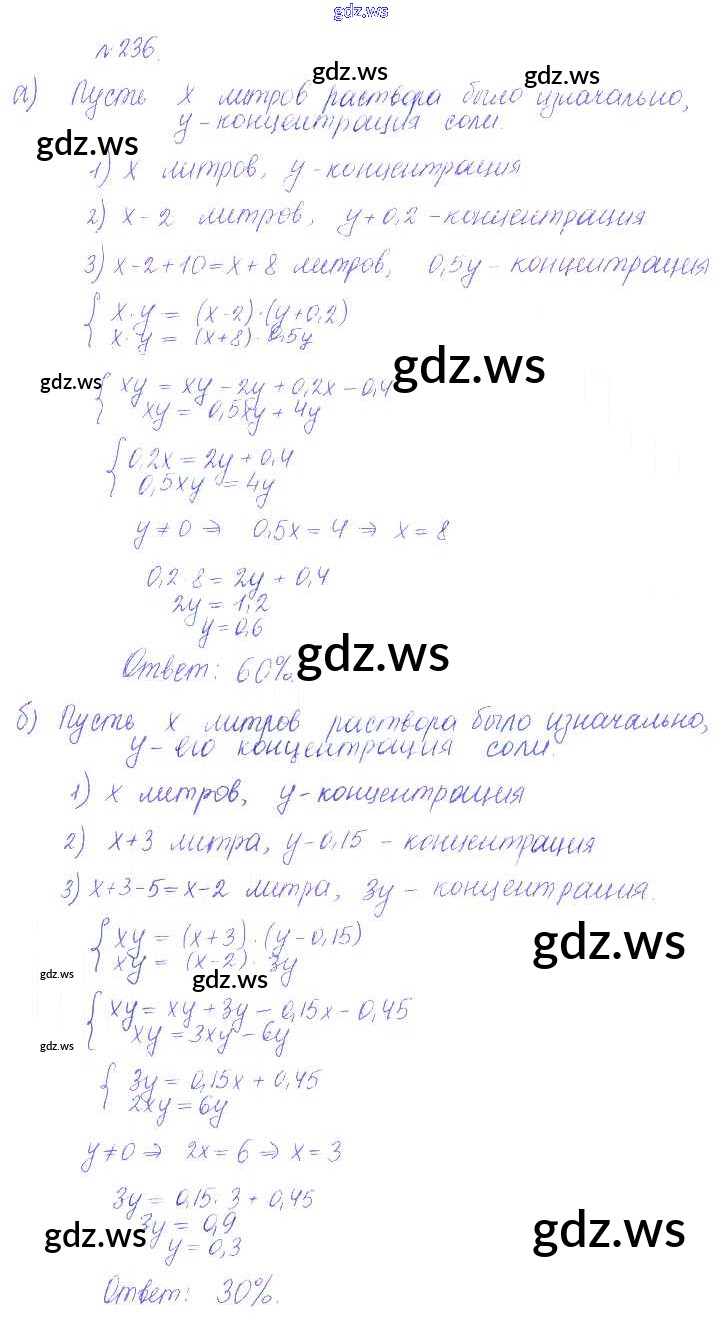 gdz.ws
№ 236.
gdz.ws gdz.ws
а) Пусть x литров раствора было изначально,
y - концентрация соли.
gdz.ws
1) x литров, y - концентрация
2) x - 2 литров, y + 0,2 - концентрация
3) x - 2 + 10 = x + 8 литров, 0,5y - концентрация
{ x · y = (x - 2) · (y + 0,2)
x · y = (x + 8) · 0,5y
gdz.ws
gdz.ws
{ xy = xy - 2y + 0,2x - 0,4
xy = 0,5xy + 4y
{ 0,2x = 2y + 0,4
0,5xy = 4y
y ≠ 0 ⇒ 0,5x = 4 ⇒ x = 8
0,2 · 8 = 2y + 0,4
2y = 1,2
y = 0,6
Ответ: 60%.
gdz.ws
б) Пусть x литров раствора было изначально,
y - его концентрация соли.
1) x литров, y - концентрация
2) x + 3 литра, y - 0,15 - концентрация
3) x + 3 - 5 = x - 2 литра, 3y - концентрация.
{ xy = (x + 3) · (y - 0,15)
xy = (x - 2) · 3y
gdz.ws
gdz.ws gdz.ws
{ xy = xy + 3y - 0,15x - 0,45
xy = 3xy - 6y
gdz.ws
{ 3y = 0,15x + 0,45
2xy = 6y
y ≠ 0 ⇒ 2x = 6 ⇒ x = 3
3y = 0,15 · 3 + 0,45
3y = 0,9
y = 0,3
gdz.ws gdz.ws
Ответ: 30%.